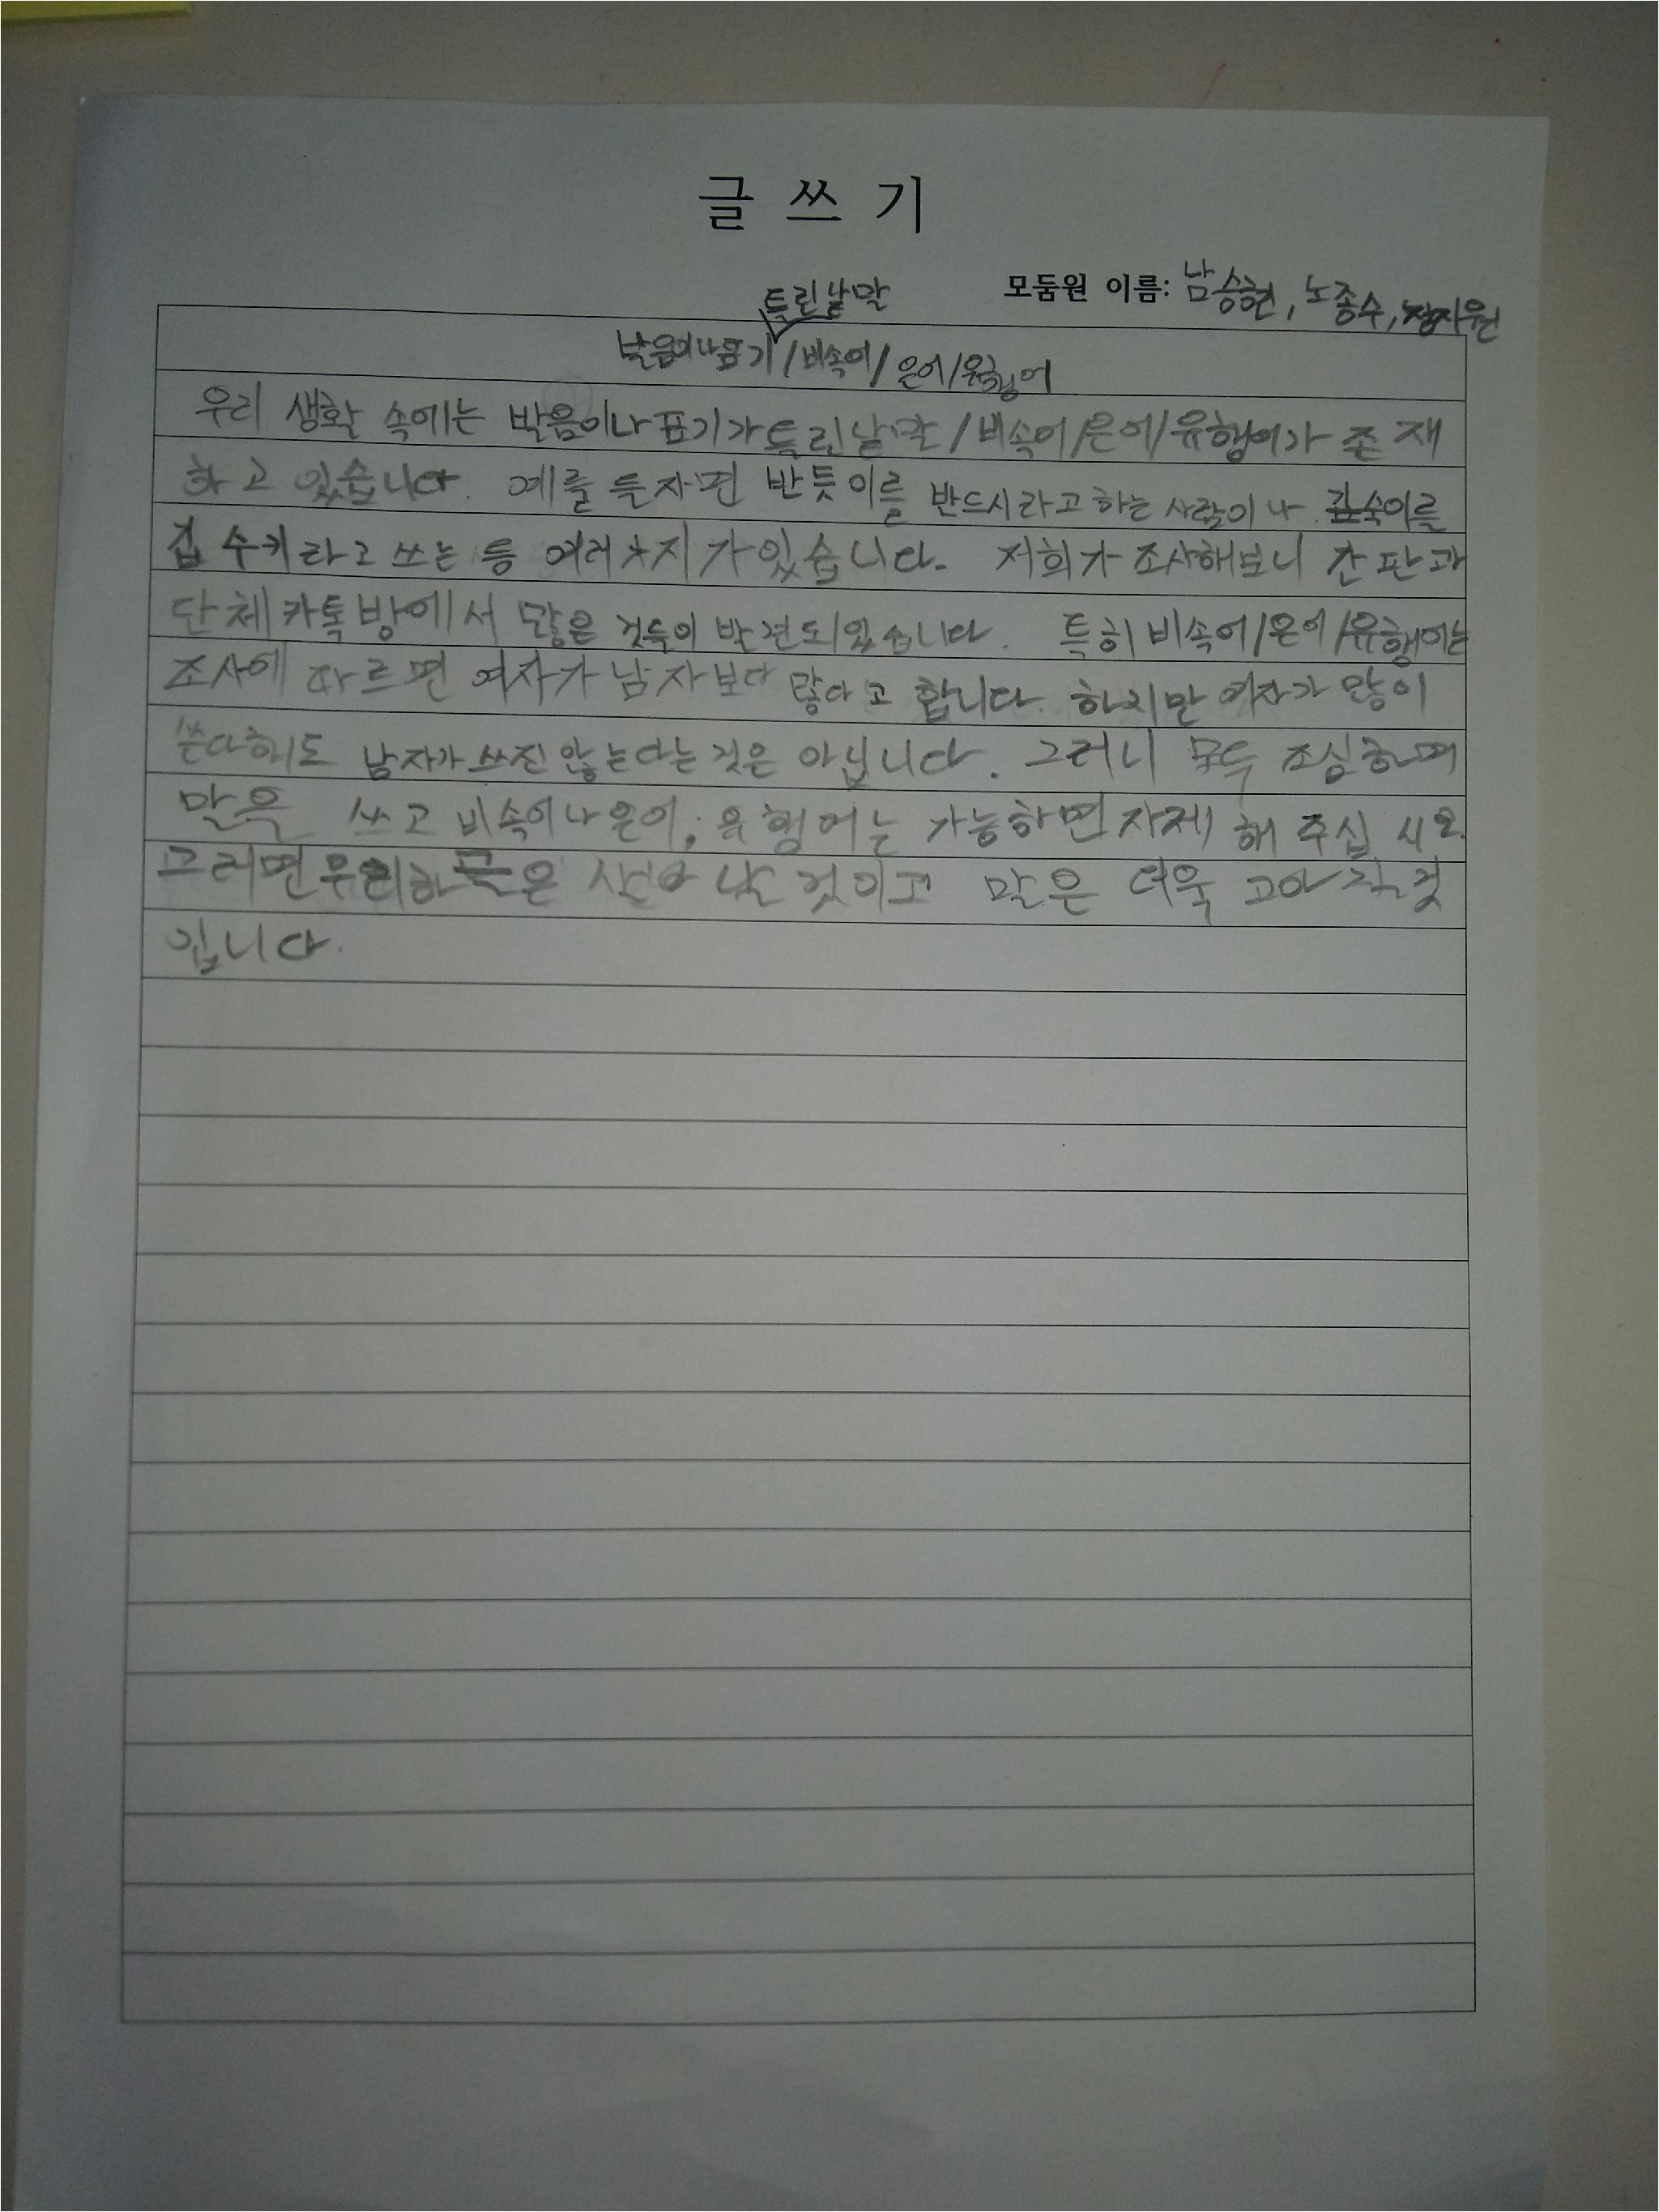 글 쓰 기
모둠원 이름: 남승현, 노종수, 정지원
틀린낱말
발음이나 표기/비속어/은어/유행어
우리 생활 속에는 발음이나 표기가 틀린낱말/비속어/은어/유행어가 존재
하고 있습니다. 예를 들자면 반듯이를 반드시라고 하는 사람이나 깊숙이를
깁수키라고 쓰는 등 여러가지가 있습니다. 저희가 조사해보니 간판과
단체카톡방에서 많은 것들이 발견되있습니다. 특히 비속어/은어/유행어는
조사에 따르면 여자가 남자보다 많다고 합니다. 하지만 여자가 많이
쓴다해도 남자가 쓰진 않는다는 것은 아닙니다. 그러니 모두 조심하며
말을 쓰고 비속어나 은어, 유행어는 가능하면 자제 해 주십시오.
그러면 우리 한글은 것이고 말은 더욱 고아질것
입니다.